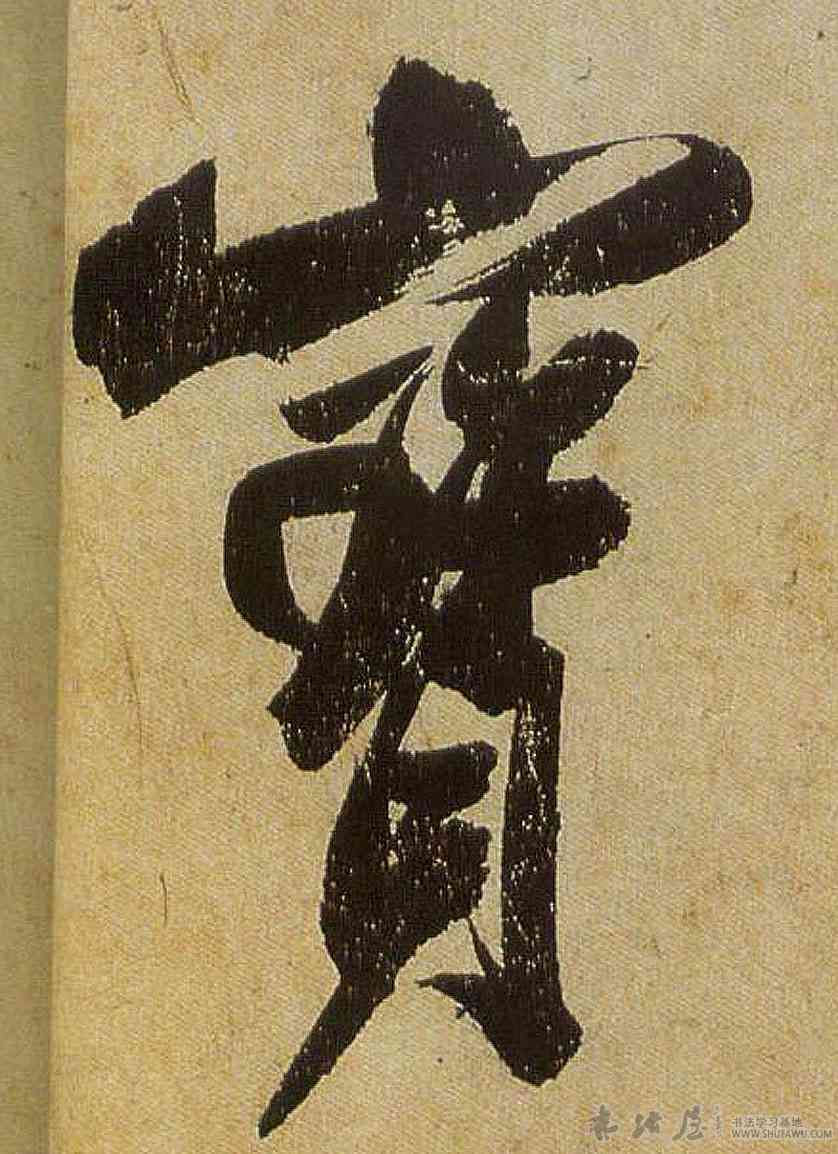 寶
书法屋
书法学习基地
WWW.SHUFAWU.COM